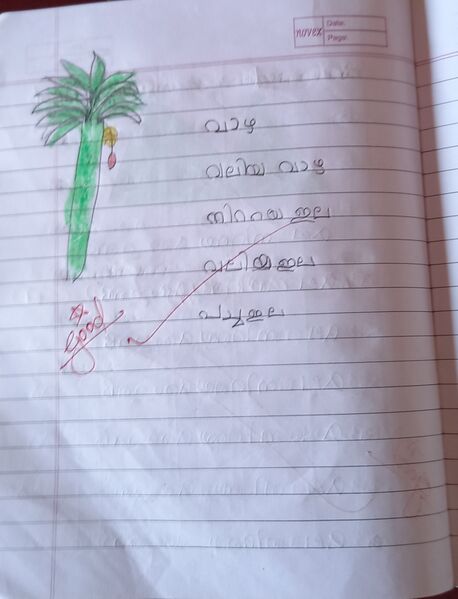 novex Date:
Page:
വാഴ
വലിയ വാഴ
നിറയെ ഇല
വലിയ ഇല
പച്ച ഇല
good